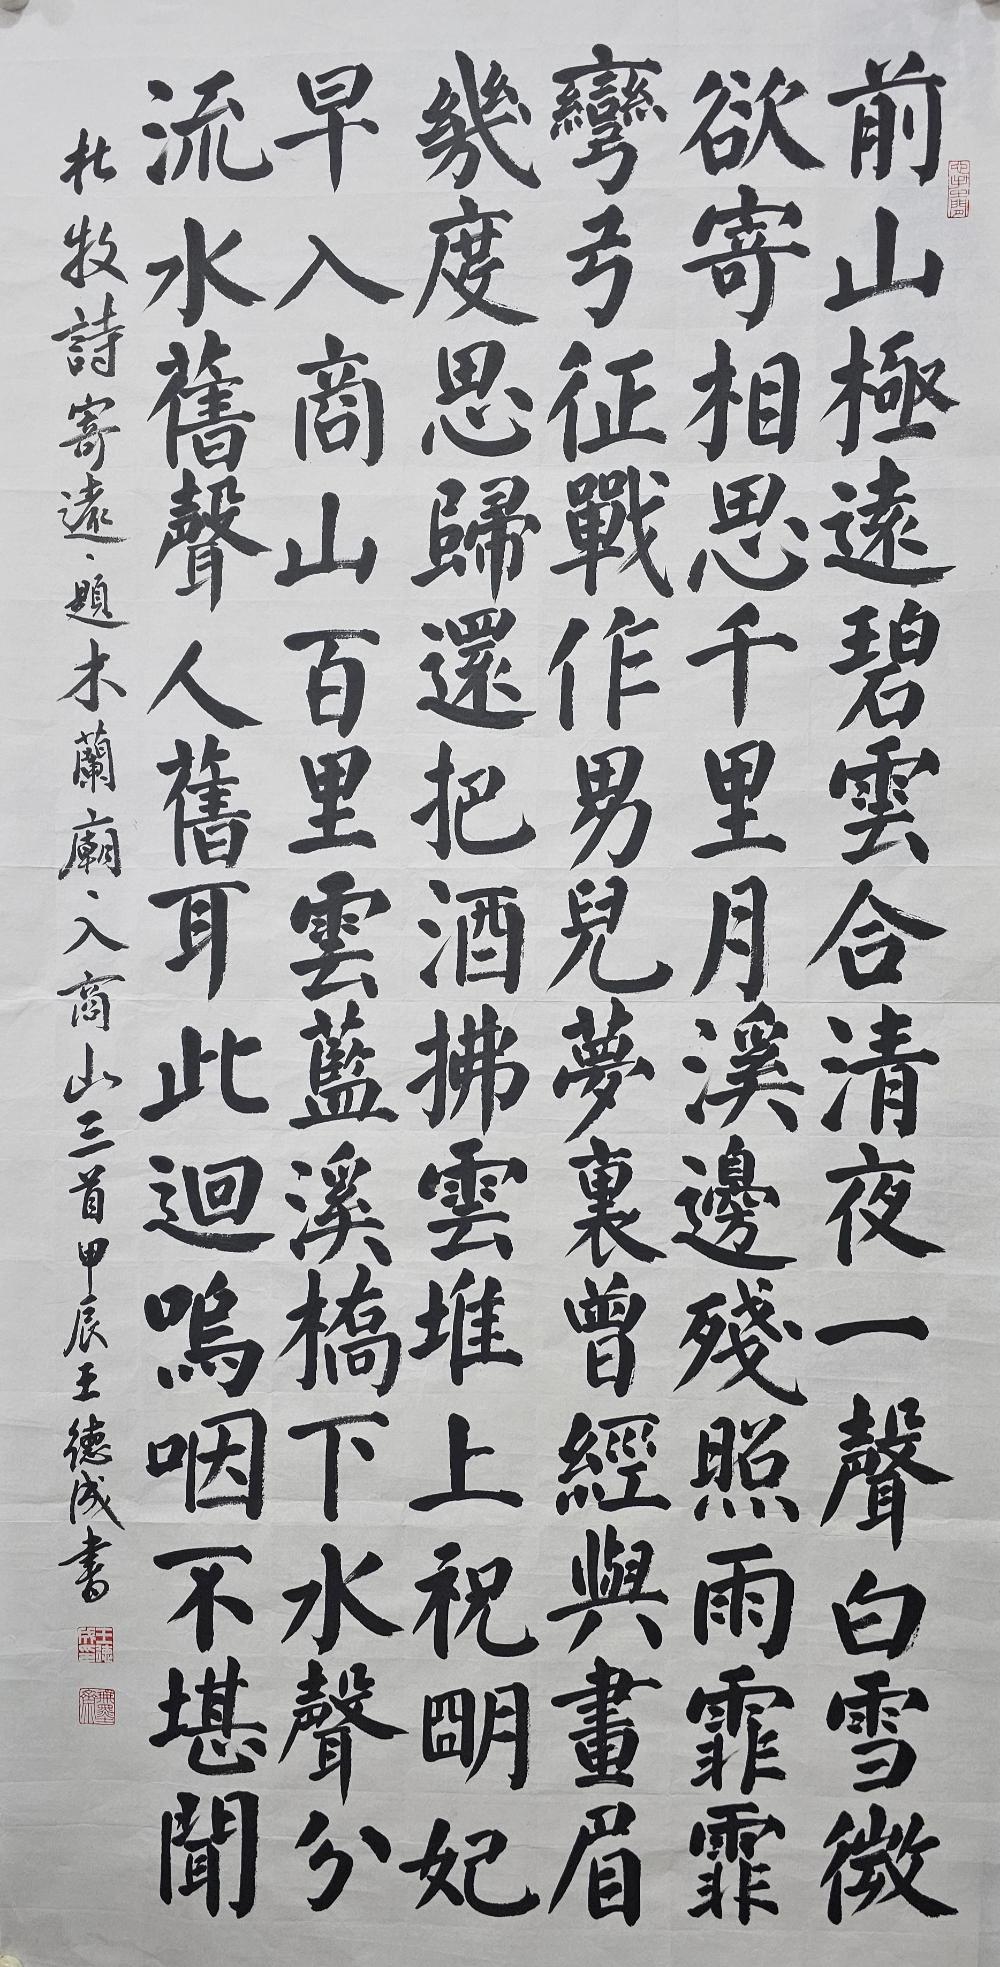 前山極遠碧雲合清夜一聲白雪微
欲寄相思千里月溪邊殘照雨霏霏
彎弓征戰作男兒夢裏曾經與畫眉
幾度思歸還把酒拂雲堆上祝朙妃
早入商山百里雲藍溪橋下水聲分
流水舊聲人舊耳此迴嗚咽不堪聞
杜牧詩寄遠、題木蘭廟、入商山三首甲辰王德成書
王德成印